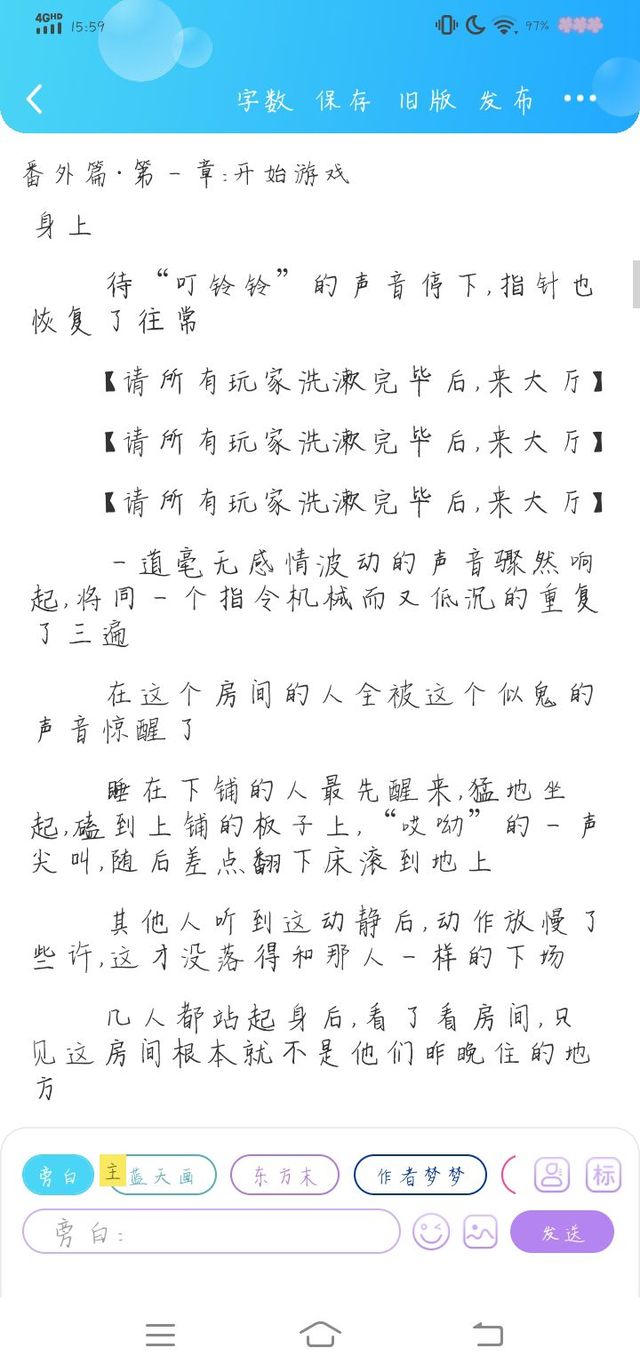 4GHD 15:59 97%
字数 保存 旧版 发布
番外篇·第一章:开始游戏
身上
待“叮铃铃”的声音停下,指针也
恢复了往常
【请所有玩家洗漱完毕后,来大厅】
【请所有玩家洗漱完毕后,来大厅】
【请所有玩家洗漱完毕后,来大厅】
一道毫无感情波动的声音骤然响
起,将同一个指令机械而又低沉的重复
了三遍
在这个房间的人全被这个似鬼的
声音惊醒了
睡在下铺的人最先醒来,猛地坐
起,磕到上铺的板子上,“哎呦”的一声
尖叫,随后差点翻下床滚到地上
其他人听到这动静后,动作放慢了
些许,这才没落得和那人一样的下场
几人都站起身后,看了看房间,只
见这房间根本就不是他们昨晚住的地
方
旁白 主 蓝天画 东方末 作者梦梦 标
旁白: 发送